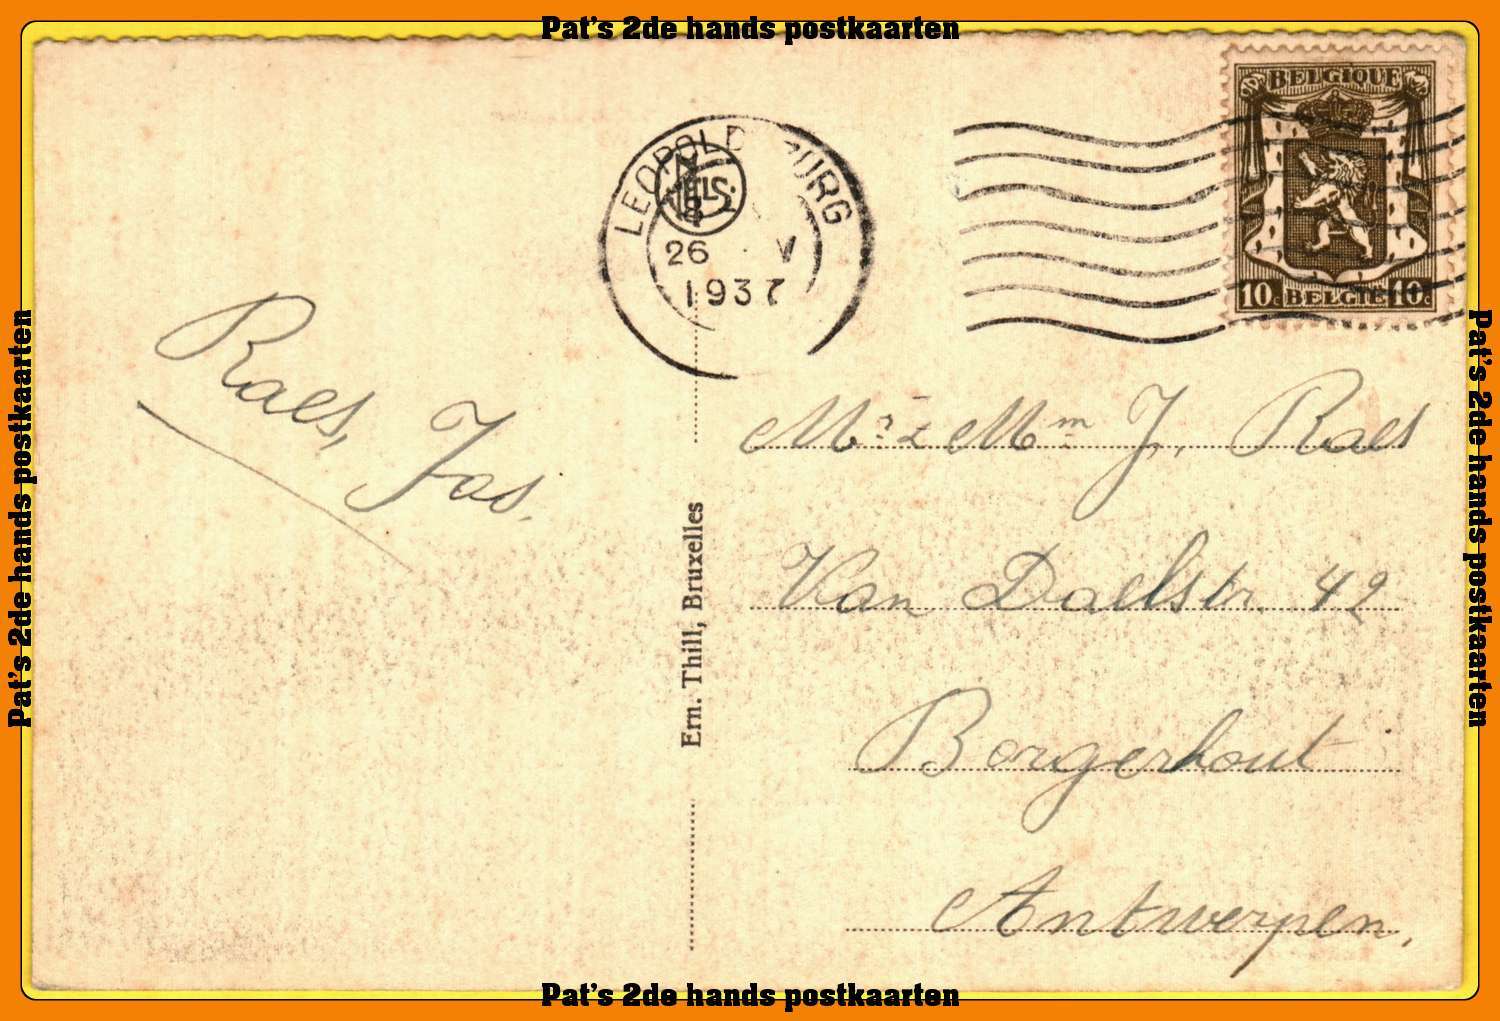 Pat's 2de hands postkaarten
BELGIQUE
10c BELGIË 10c
LEOPOLDSBURG
NELS
26 V
1937
Raes, Jos.
Mr & Mm J. Raes
Van Daelstr. 42
Borgerhout
Antwerpen.
Ern. Thill, Bruxelles
Pat's 2de hands postkaarten
Pat's 2de hands postkaarten
Pat's 2de hands postkaarten